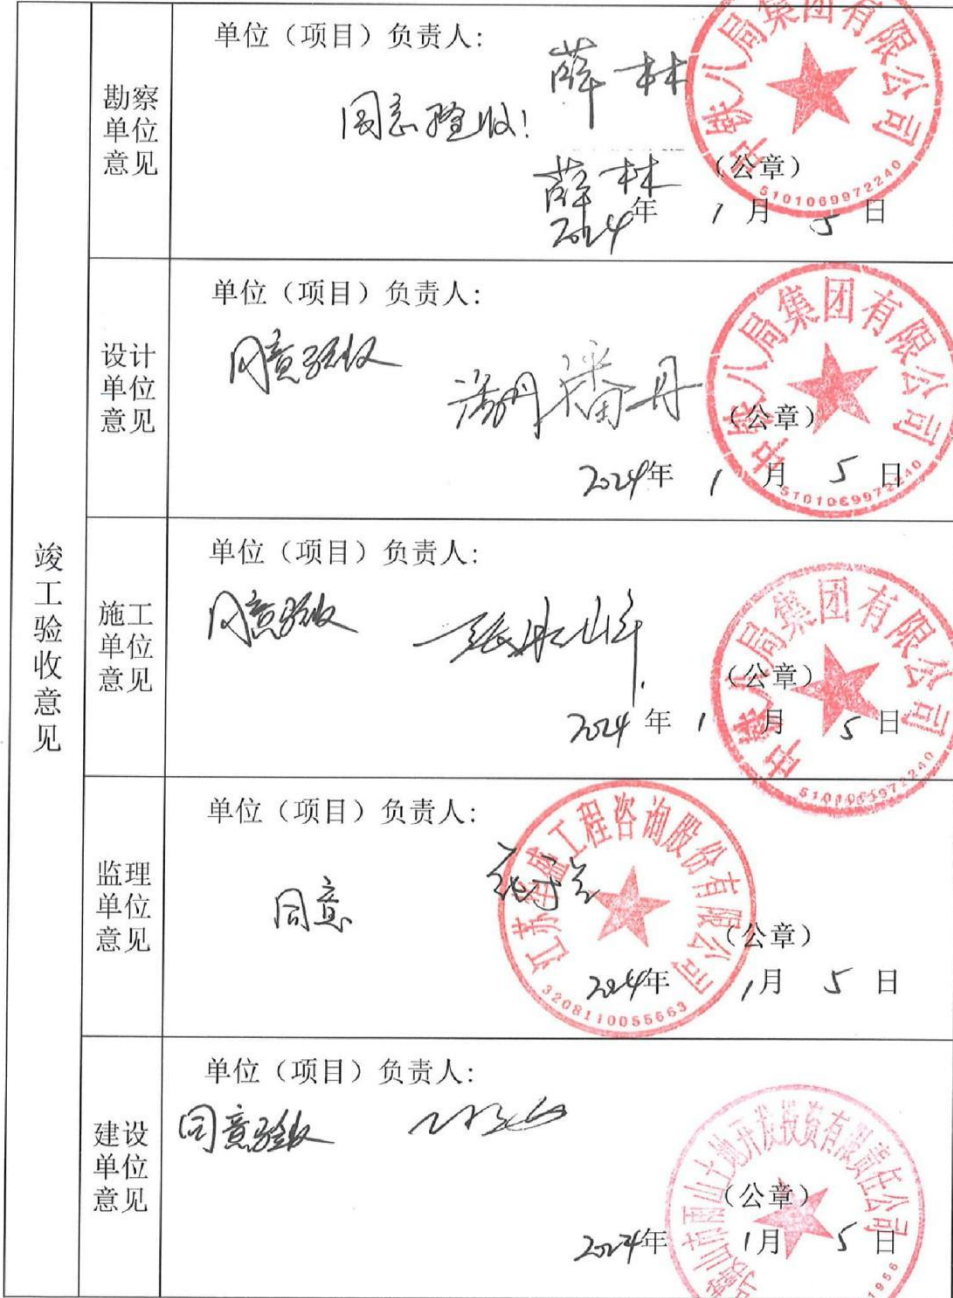 竣工验收意见
勘察单位意见
单位（项目）负责人：
薛林
同意验收！
薛林
（公章）
2024年 1月 5日
中铁八局集团有限公司
5101069972240
设计单位意见
单位（项目）负责人：
同意验收
潘丹 潘丹
（公章）
2024年 1月 5日
中铁八局集团有限公司
5101069972240
施工单位意见
单位（项目）负责人：
同意验收
（公章）
2024年 1月 5日
中铁八局集团有限公司
监理单位意见
单位（项目）负责人：
同意
（公章）
2024年 1月 5日
工程咨询股份有限公司
3208110055663
建设单位意见
单位（项目）负责人：
同意验收
（公章）
2024年 1月 5日
鞍山市雨山土地开发投资有限责任公司